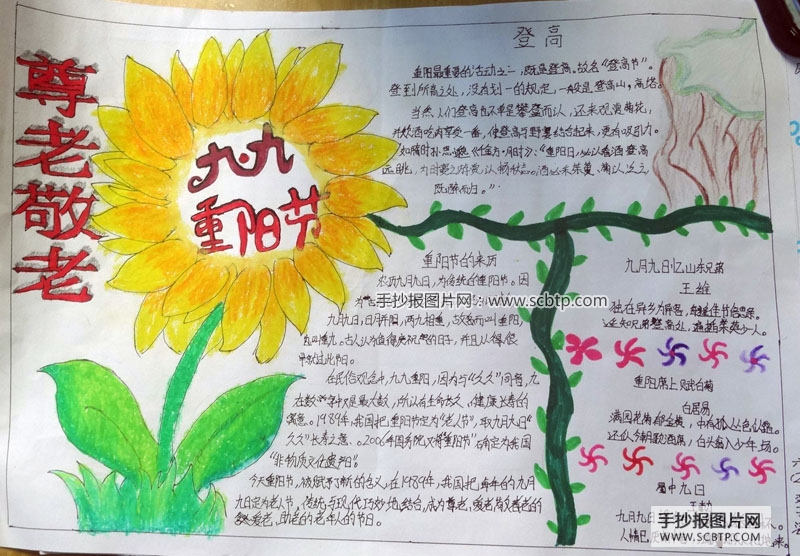 尊老敬老
九九
重阳节
登高
重阳最重要的活动之一,既是登高。故名"登高节"。
登到所高之处,没有划一的规定,一般是登高山,高塔。
当然,人们登高也不单是攀登而以,还来观赏菊花,
并饮酒吃肉享受一番,使登高与野宴结合起来,更有吸引力。
重阳节的来历
农历九月九日,为传统的重阳节。因
九月九日,日月并阳,两九相重,故而叫重阳,
在民俗观念中,九九重阳,因为与"久久"同音,九
在数字中又是最大数,所以有生命长久、健康长寿的
寓意。1989年,我国把重阳节定为"老人节",取九月九日"
久久"长寿之意、2006年国务院又将重阳节
"非物质文化遗产"。
今天重阳节,被赋予了新的含义,在1989年,我国把每年的九月
九日定为老人节,传统与现代巧妙地结合,成为尊老,爱老
助老的老年人的节日。
九月九日忆山东兄弟
王维
独在异乡为异客,每逢佳节倍思亲。
遥知兄弟登高处,遍插茱萸少一人。
重阳席上赋白菊
白居易
满园花菊郁金黄,中有孤丛色似霜。
还似今朝歌酒席,白头翁入少年场。
蜀中九日
王勃
手抄报图片网:www.scbtp.com
手抄报图片网
WWW.SCBTP.COM